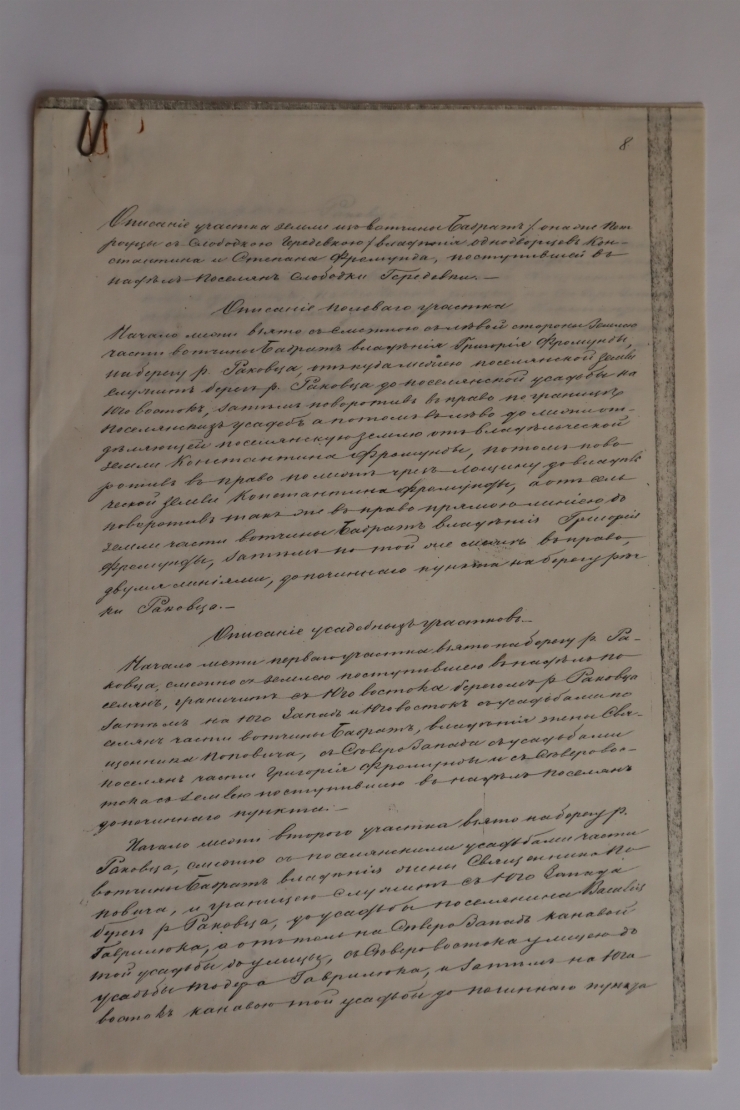 8
Описаніе участка земли изъ вотчины Бабратъ /
съ Слободкою владѣнія однодворцевъ Кон-
стантина и Степана Фромунда, поступившей въ
надѣлъ поселянъ Слободки
Описаніе полеваго участка
Начало межи взято съ смежною съ лѣвой стороны землею
части вотчины Бабратъ владѣнія Григорія Фромунды,
на берегу р. Раковца, откуда межею поселянской земли
служитъ берегъ р. Раковца до поселянской усадьбы на
Юго востокъ, затѣмъ поворотивъ въ право по границѣ
поселянскихъ усадебъ а потомъ въ лѣво до межи от-
дѣляющей поселянскую землю отъ владѣльческой
земли Константина Фромунды, потомъ пово-
ротивъ въ право по межѣ чрезъ лощину до владѣль
ческой земли Константина Фромунды, а отъ сель
поворотивъ также въ право прямою линіею до
земли части вотчины Бабратъ владѣнія Григорія
Фромунды, затѣмъ по той же межѣ въ право,
двумя линіями, до починнаго пункта на берегу рѣч
ки Раковца.—
Описаніе усадебныхъ участковъ.—
Начало межи перваго участка взято на берегу р. Ра-
ковца, смежно съ землею поступившею въ надѣлъ по
селянъ, граничитъ съ Юго востока берегомъ р. Раковца
затѣмъ на Юго Западъ и Юго востокъ съ усадьбами по
селянъ части вотчины Бабратъ, владѣнія жены Свя-
щенника Поповича, съ Сѣверо Запада съ усадьбами
поселянъ части Григорія Фромунды и съ Сѣверо вос-
тока съ землею поступившею въ надѣлъ поселянъ
до починнаго пункта.—
Начало межи втораго участка взято на берегу р.
Раковца, смежно съ поселянскими усадьбами части
вотчины Бабратъ владѣнія жены Священника По
повича, и границею служитъ съ Юго Запада
берегъ р. Раковца, до усадьбы поселянина Василія
Гаврилюка, а оттоль на Сѣверо Западъ канавой
той усадьбы до улицы, съ Сѣверо востока улицею до
усадьбы Тодера Гаврилюка, а затѣмъ на Юго-
востокъ канавою той усадьбы до починнаго пункта